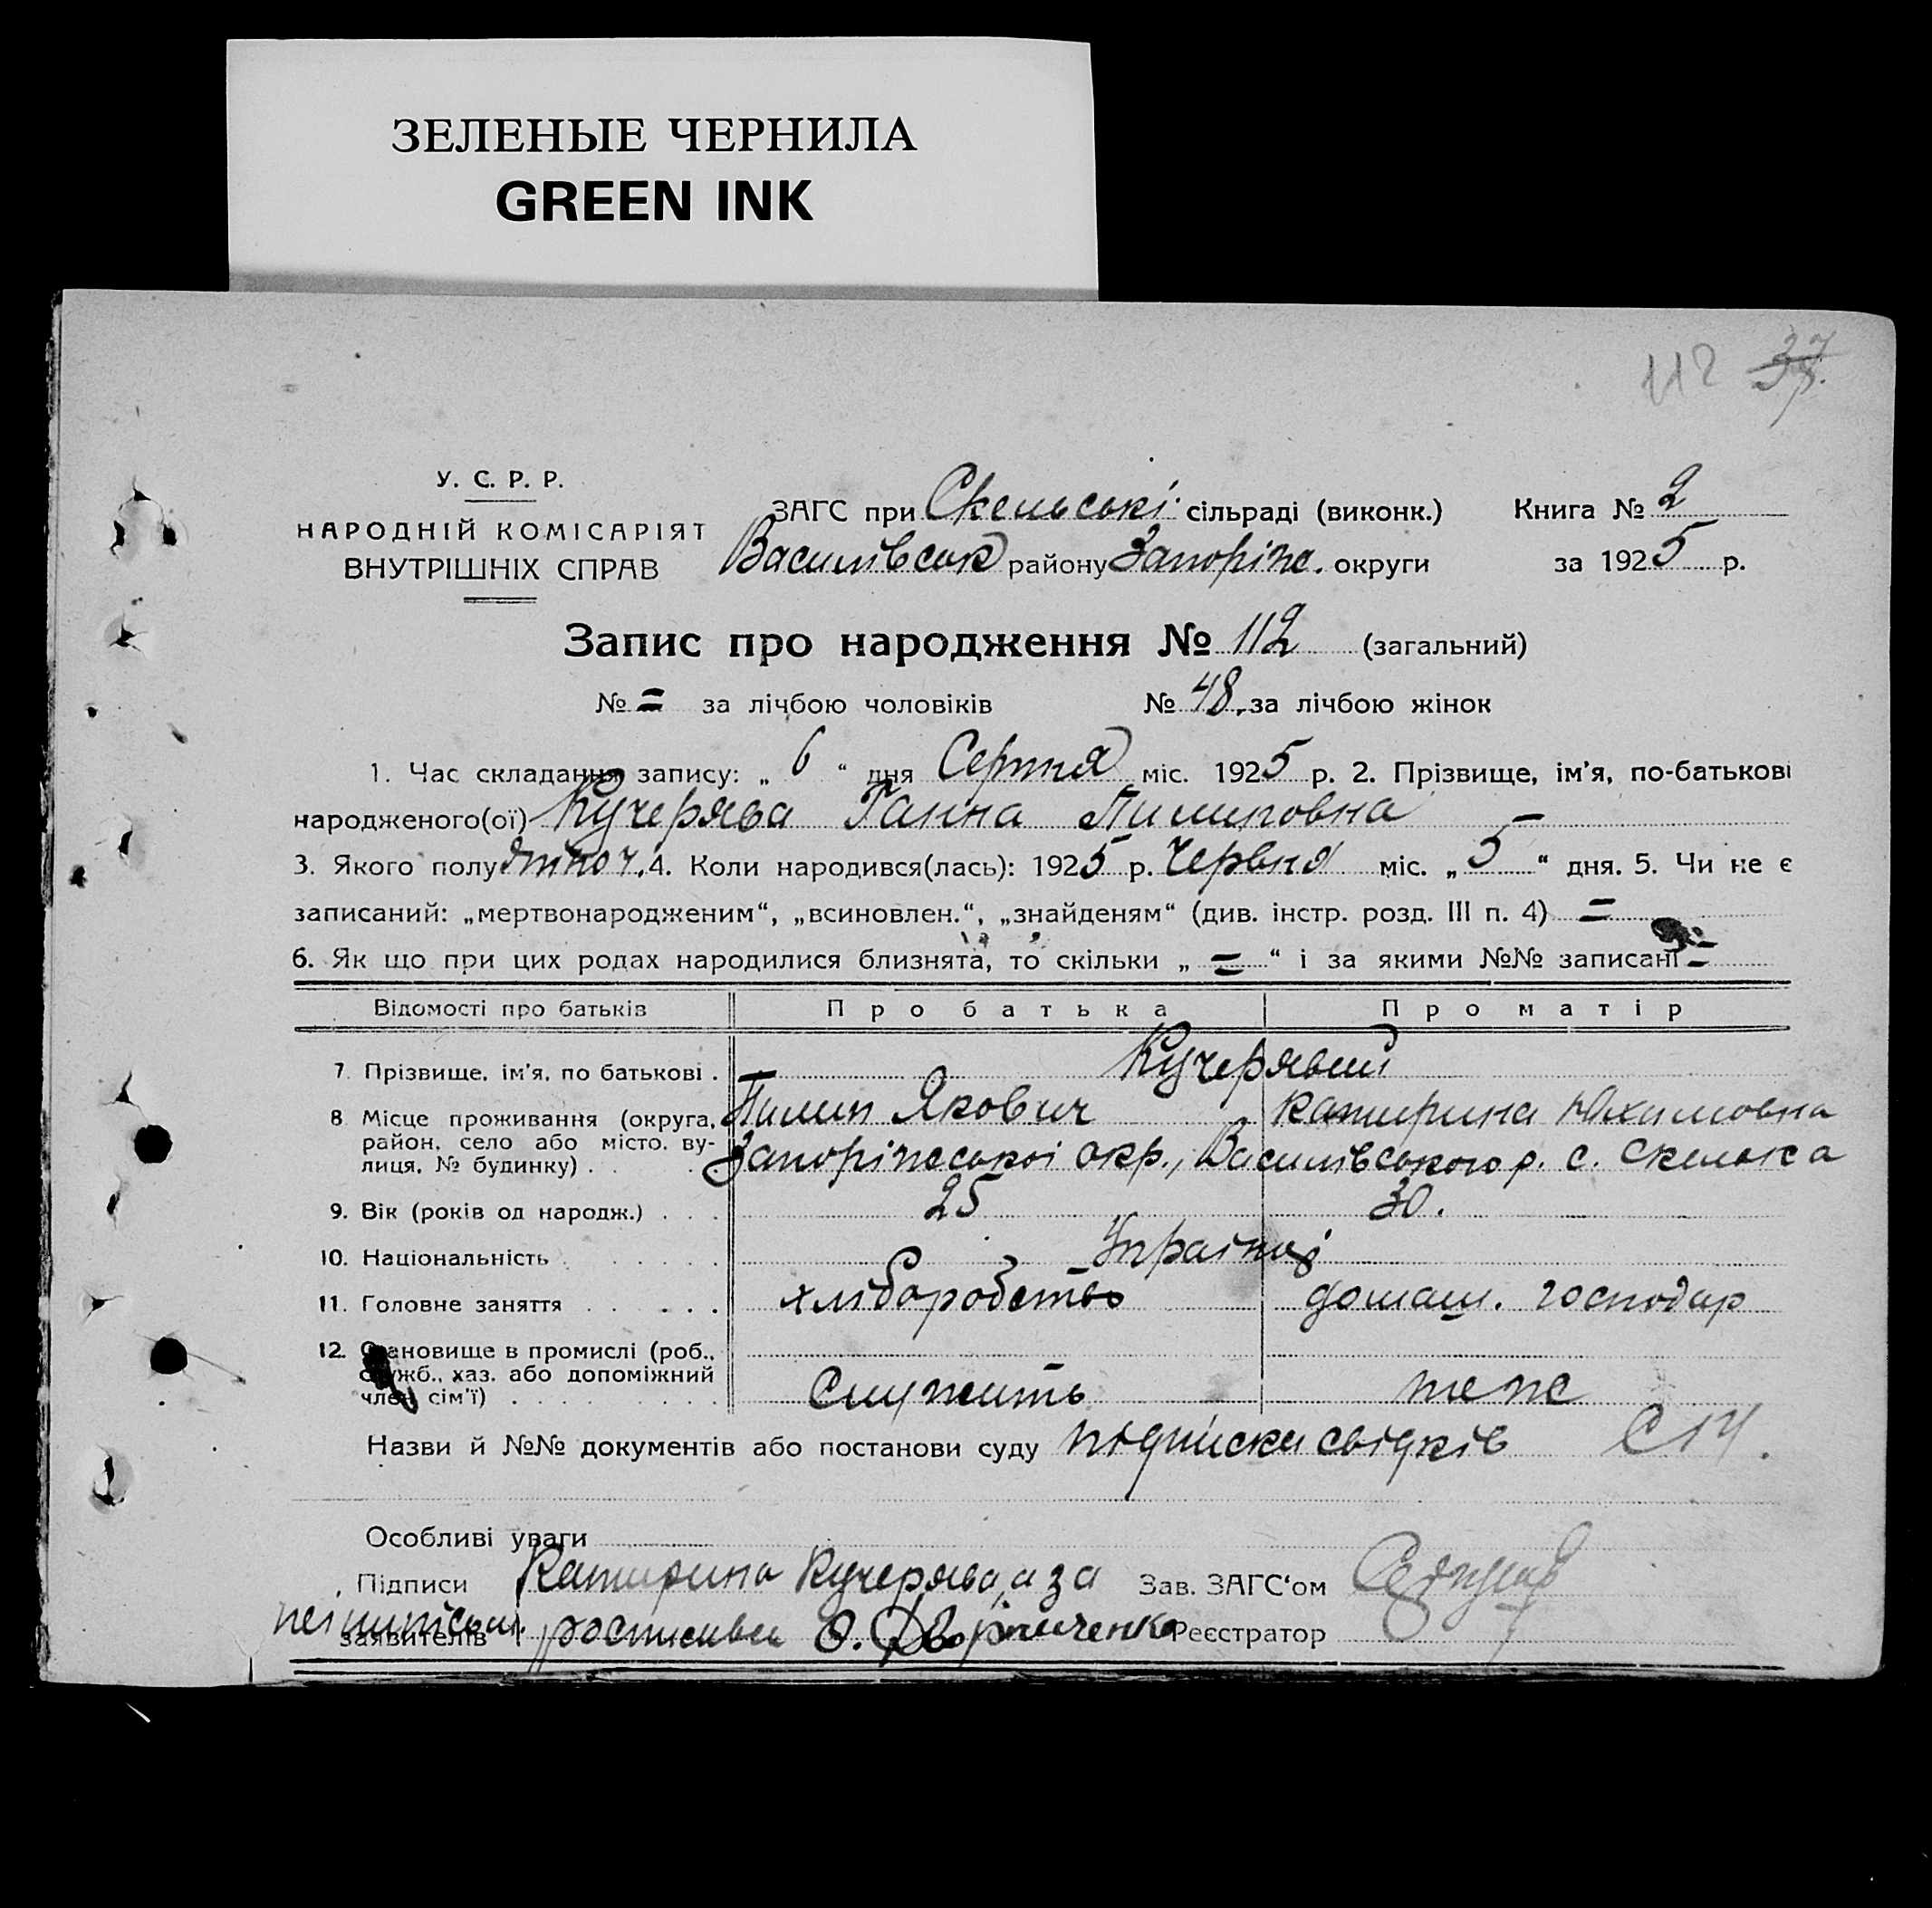 ЗЕЛЕНЫЕ ЧЕРНИЛА
GREEN INK
112 37
У. С. Р. Р.
НАРОДНІЙ КОМІСАРІЯТ
ВНУТРІШНІХ СПРАВ
ЗАГС при Скельські сільраді (виконк.) Книга № 2
Василівськ району Запоріж. округи за 1925 р.
Запис про народження № 112 (загальний)
№ = за лічбою чоловіків № 48 за лічбою жінок
1. Час складання запису: „ 6 “ дня Серпня міс. 1925 р. 2. Прізвище, ім’я, по-батькові
народженого(ої) Кучерява Ганна Пилиповна
3. Якого полу жіноч. 4. Коли народився(лась): 1925 р. Червня міс. „ 5 “ дня. 5. Чи не є
записаний: „мертвонародженим“, „всиновлен.“, „знайденям“ (див. інстр. розд. III п. 4) =
6. Як що при цих родах народилися близнята, то скільки „ = “ і за якими №№ записані =
Відомості про батьків Про батька Про матір
7. Прізвище, ім’я, по батькові . Кучеряви
Пилип Якович Катирина Юхимовна
8 Місце проживання (округа, район, село або місто, вулиця, № будинку) . . Запоріжськоі окр., Василівського р. с. Скелька
9. Вік (років од народж.) . . . 25 30.
10. Національність . . . . . Украінці
11. Головне заняття . . . . . хліборобство домаш. господар
12. Становище в промислі (роб., служб., хаз. або допоміжний член сім’ї) . . . . . Служить теж
Назви й №№ документів або постанови суду підписки свідків С14.
Особливі уваги
Підписи Катирина Кучерява, а за Зав. ЗАГС‘ом
заявителів неі росписався О. Реєстратор